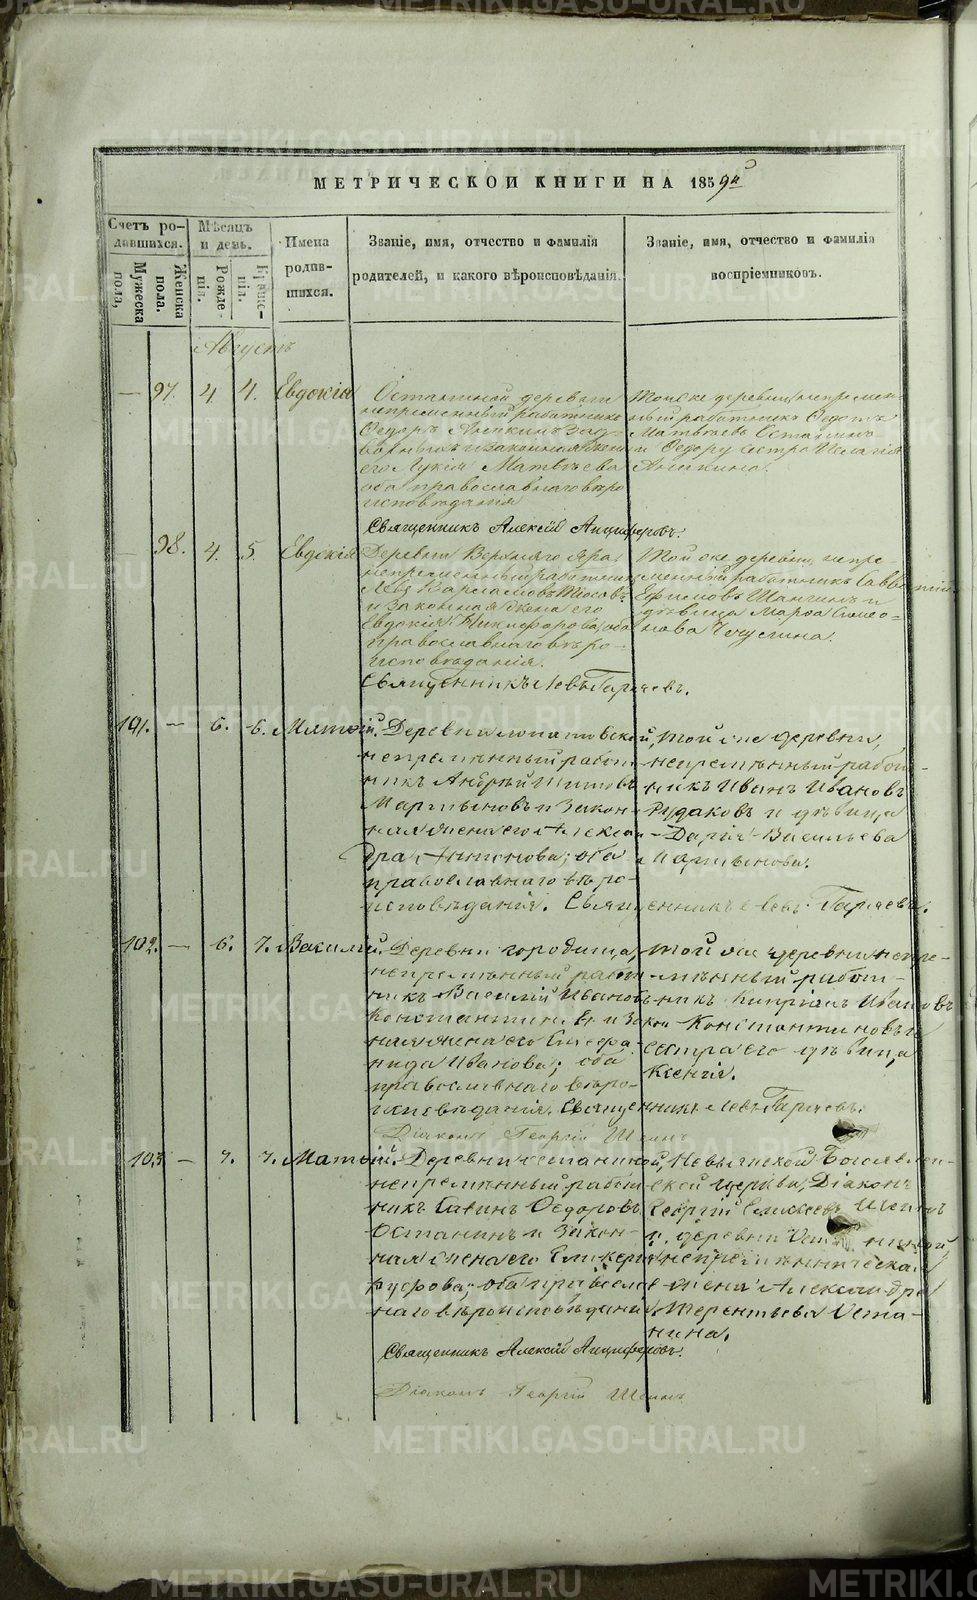 МЕТРИЧЕСКОЙ КНИГИ НА 1859й
Счетъ ро-
дившихся.
Мужеска
пола,
Женска
пола.
Мѣсяцъ
и день.
Рожде-
нія.
Креще-
нія.
Имена
родив-
шихся.
Званіе, имя, отчество и фамилія
родителей, и какого вѣроисповѣданія.
Званіе, имя, отчество и фамилія
воспріемниковъ.
Августъ
— 97. 4 4. Евдокія
Останиной деревни
непременный работникъ
Ѳедоръ Аникинъ
и законная жена
его Лукія Матвѣева
оба православнаго вѣро
исповѣданія
Тойже деревни, непремен-
ный работникъ Ѳедотъ
Матвѣевъ Останинъ
и Ѳедору сестра Пелагія
Аникина.
Священникъ Алексій Анциферовъ.
— 98. 4. 5 Евдокія
Деревни Верхняго Яра,
непременный работник
Левъ Варламовъ
и законная жена его
Евдокія Никифорова, оба
православнаго вѣро-
исповѣданія.
Той же деревни, непре-
менный работникъ Савватій
Ефимовъ Шангинъ и
дѣвица Марѳа Симео-
нова Чечулина.
Священникъ Левъ Гаряевъ.
101. — 6. 6. Матѳій.
Деревни Липатовской,
непремѣнный работ-
никъ Андрей Титовъ
Мартыновъ и закон-
ная жена его Алексан-
дра Антонова; оба
православнаго вѣро-
исповѣданія.
той же деревни,
непремѣнный работ-
никъ Иванъ Ивановъ
Рудаковъ и дѣвица
Дарія Васильева
Мартынова.
Священникъ Левъ Гаряевъ.
102. — 6. 7. Василій.
Деревни городища,
непремѣнный работ-
никъ Василій Ивановъ
Константиновъ и закон-
ная жена его Епифа-
нида Иванова; оба
православнаго вѣро-
исповѣданія.
той же деревни непре-
мѣнный работ-
никъ Кипріянъ Ивановъ
Константиновъ и
сестра его дѣвица
Ксенія.
Священникъ Левъ Гаряевъ.
Діаконъ Георгій Шеинъ
103. — 7. 7. Матѳій.
Деревни Останиной,
непремѣнный работ-
никъ Савинъ Ѳедоровъ
Останинъ и закон-
ная жена его Гликерія
оба православ-
наго вѣроисповѣданія
Невьянской Богоявлен-
ской церкви, Діаконъ
Георгій Елисеевъ Шеинъ
и деревни Останиной,
непремѣнническая
жена Александра
Терентьева Оста-
нина.
Священникъ Алексій Анциферовъ.
Діаконъ Георгій Шеинъ
METRIKI.GASO-URAL.RU